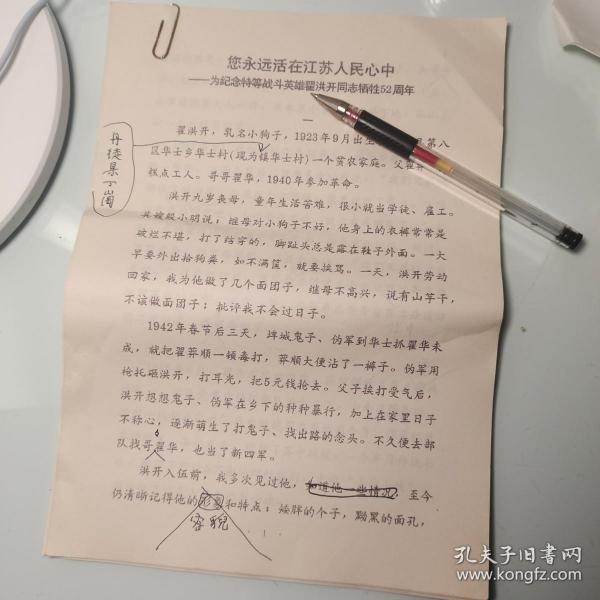 您永远活在江苏人民心中
——为纪念特等战斗英雄翟洪开同志牺牲52周年
一
翟洪开，乳名小狗子，1923年9月出生 第八
区华士乡华士村(现为镇华士村)一个贫农家庭。父翟
糕点工人。哥哥翟华，1940年参加革命。
洪开九岁丧母，童年生活苦难，很小就当学徒、雇工。
其嫂 小明说：继母对小狗子不好，他身上的衣裤常常是
破烂不堪，打了结字的，脚趾头总是露在鞋子外面。一大
早要外出拾狗粪，如不满筐，就要挨骂。一天，洪开劳动
回家，我为他做了几个面团子，继母不高兴，说有山芋干，
不该做面团子；批评我不会过日子。
1942年春节后三天，埤城鬼子、伪军到华士抓翟华未
成，就把翟莽顺一顿毒打，莽顺大便沾了一裤子。伪军用
枪托砸洪开，打耳光，把5元钱抢去。父子挨打受气后，
洪开想想鬼子、伪军在乡下的种种暴行，加上在家里日子
不称心，逐渐萌生了打鬼子、找出路的念头。不久便去部
队找哥翟华，也当了新四军。
洪开入伍前，我多次见过他，知道他一些情况，至今
仍清晰记得他的形象和特点：矮胖的个子，黝黑的面孔，
容貌
1
丹徒县丁岗
孔夫子旧书网
www.kongfz.com